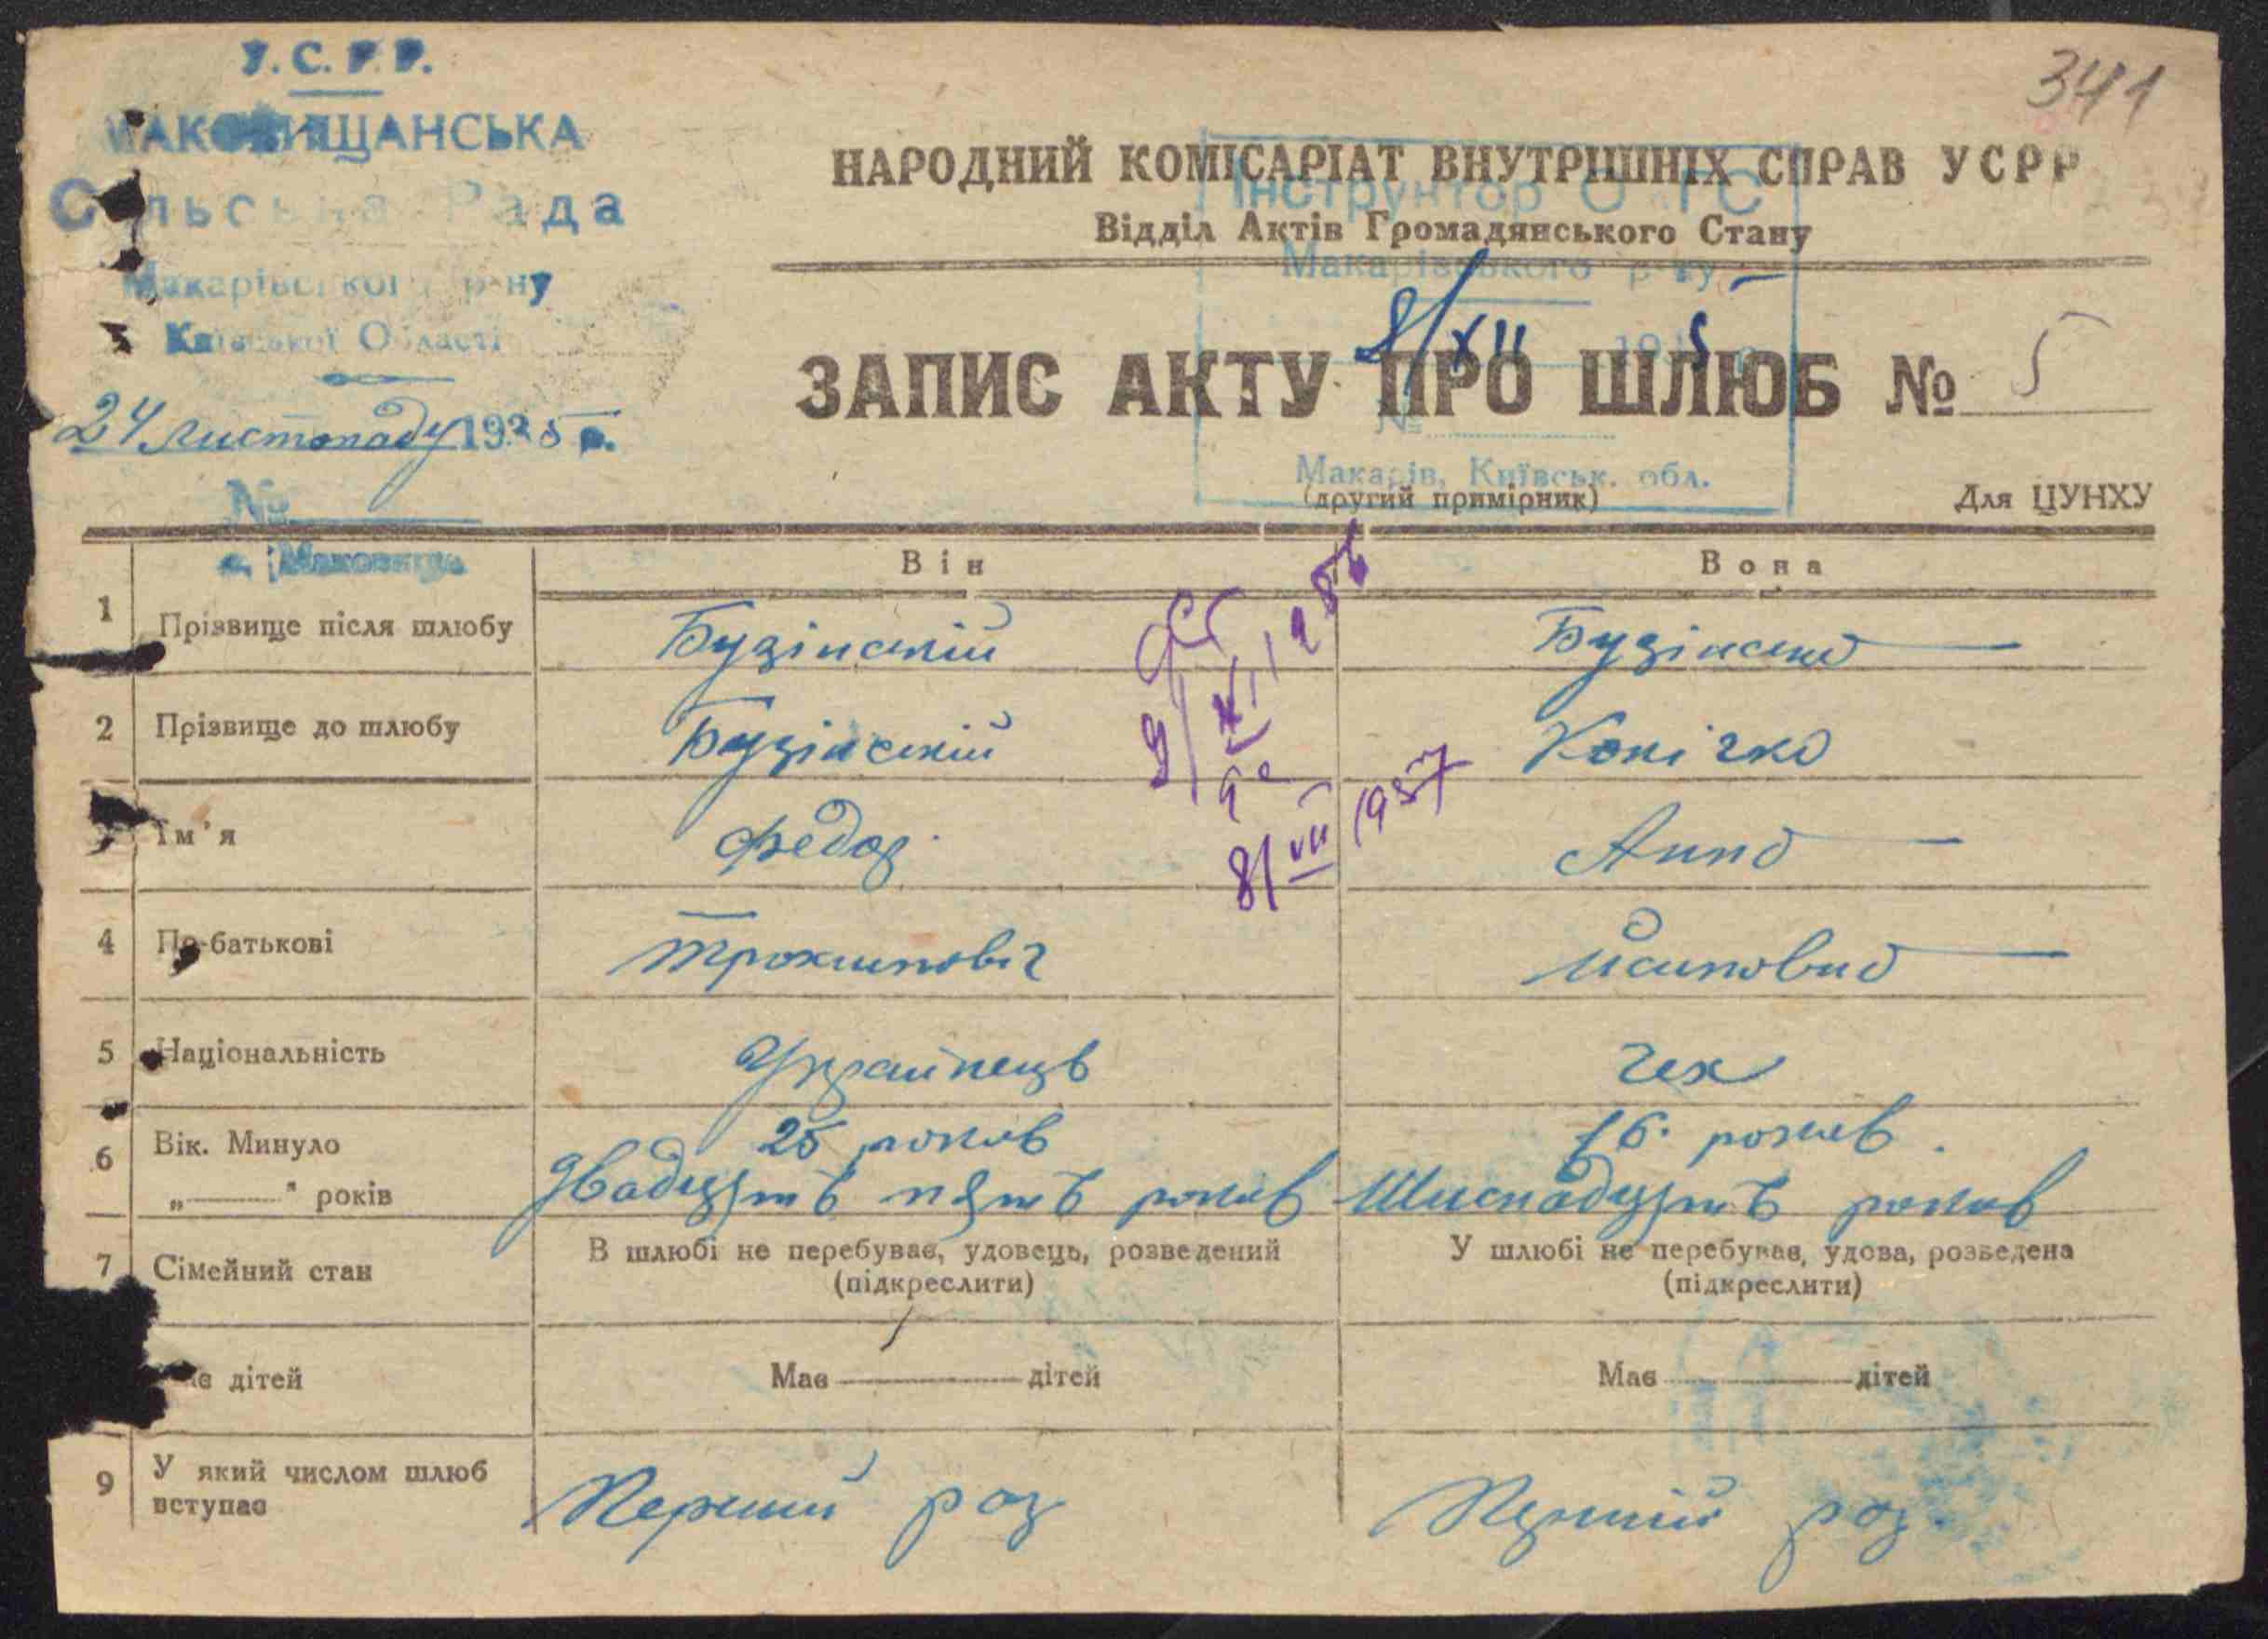 У.С.Р.Р.
341
МАКОВИЩАНСЬКА
Сільська Рада
Макарівської р-ну
Київської Області
24 листопаду 1935 р.
№
с. Маковище
НАРОДНИЙ КОМІСАРІАТ ВНУТРІШНІХ СПРАВ УСРР
Відділ Актів Громадянського Стану
Інструктор О ГС
Макарівського р-ну
8/XII 1935
№
Макарів, Київськ. обл.
ЗАПИС АКТУ ПРО ШЛЮБ № 5
(другий примірник)
Для ЦУНХУ
Він Вона
1 Прізвище після шлюбу Бузінський Бузінська
2 Прізвище до шлюбу Бузінський Конічка
9/XII
8/VII 1957
Ім'я Федор Анна
4 По-батькові Трохимович Йсиповна
5 Національність Українець Чех
6 Вік. Минуло 25 років 16. років.
„———" років двадцять пять років Шиснадцять років
7 Сімейний стан В шлюбі не перебуває, удовець, розведений У шлюбі не перебуває, удова, розведена
(підкреслити) (підкреслити)
дітей Має дітей Має дітей
9 У який числом шлюб вступає Перший раз Перший раз.